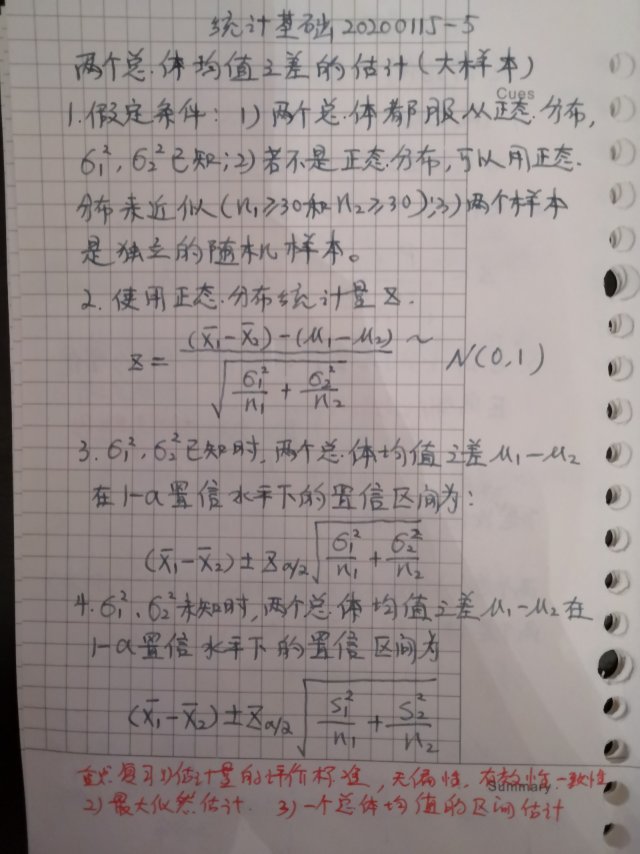 统计基础 20200115-5
两个总体均值之差的估计(大样本)
Cues
1.假定条件:1)两个总体都服从正态分布,
σ₁²,σ₂²已知;2)若不是正态分布,可以用正态
分布来近似(n₁≥30和n₂≥30);3)两个样本
是独立的随机样本。
2.使用正态分布统计量z.
z = ((x̄₁-x̄₂)-(μ₁-μ₂))/√(σ₁²/n₁+σ₂²/n₂) ~ N(0,1)
3.σ₁²,σ₂²已知时,两个总体均值之差μ₁-μ₂
在1-α置信水平下的置信区间为:
(x̄₁-x̄₂)±z_α/2 √(σ₁²/n₁+σ₂²/n₂)
4.σ₁²,σ₂²未知时,两个总体均值之差μ₁-μ₂在
1-α置信水平下的置信区间为
(x̄₁-x̄₂)±z_α/2 √(s₁²/n₁+s₂²/n₂)
重点复习 1)估计量的评价标准,无偏性,有效性,一致性
Summary
2)最大似然估计 3)一个总体均值的区间估计